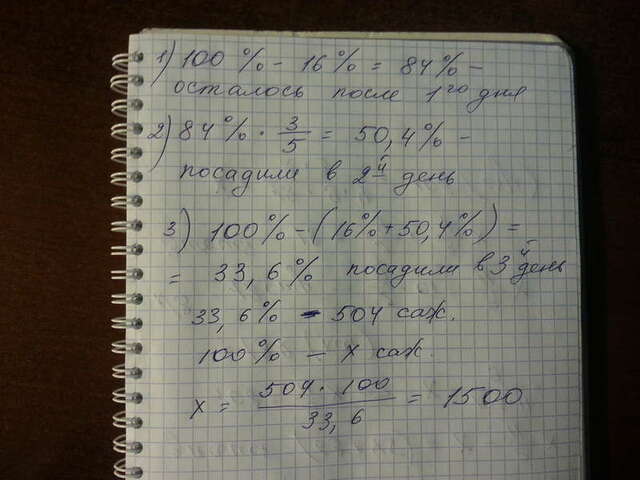 1) 100% - 16% = 84% -
осталось после 1го дня
2) 84% · 3/5 = 50,4% -
посадили в 2й день
3) 100% - (16% + 50,4%) =
= 33,6% посадили в 3й день
33,6% - 504 саж.
100% - х саж.
х = 504 · 100 / 33,6 = 1500